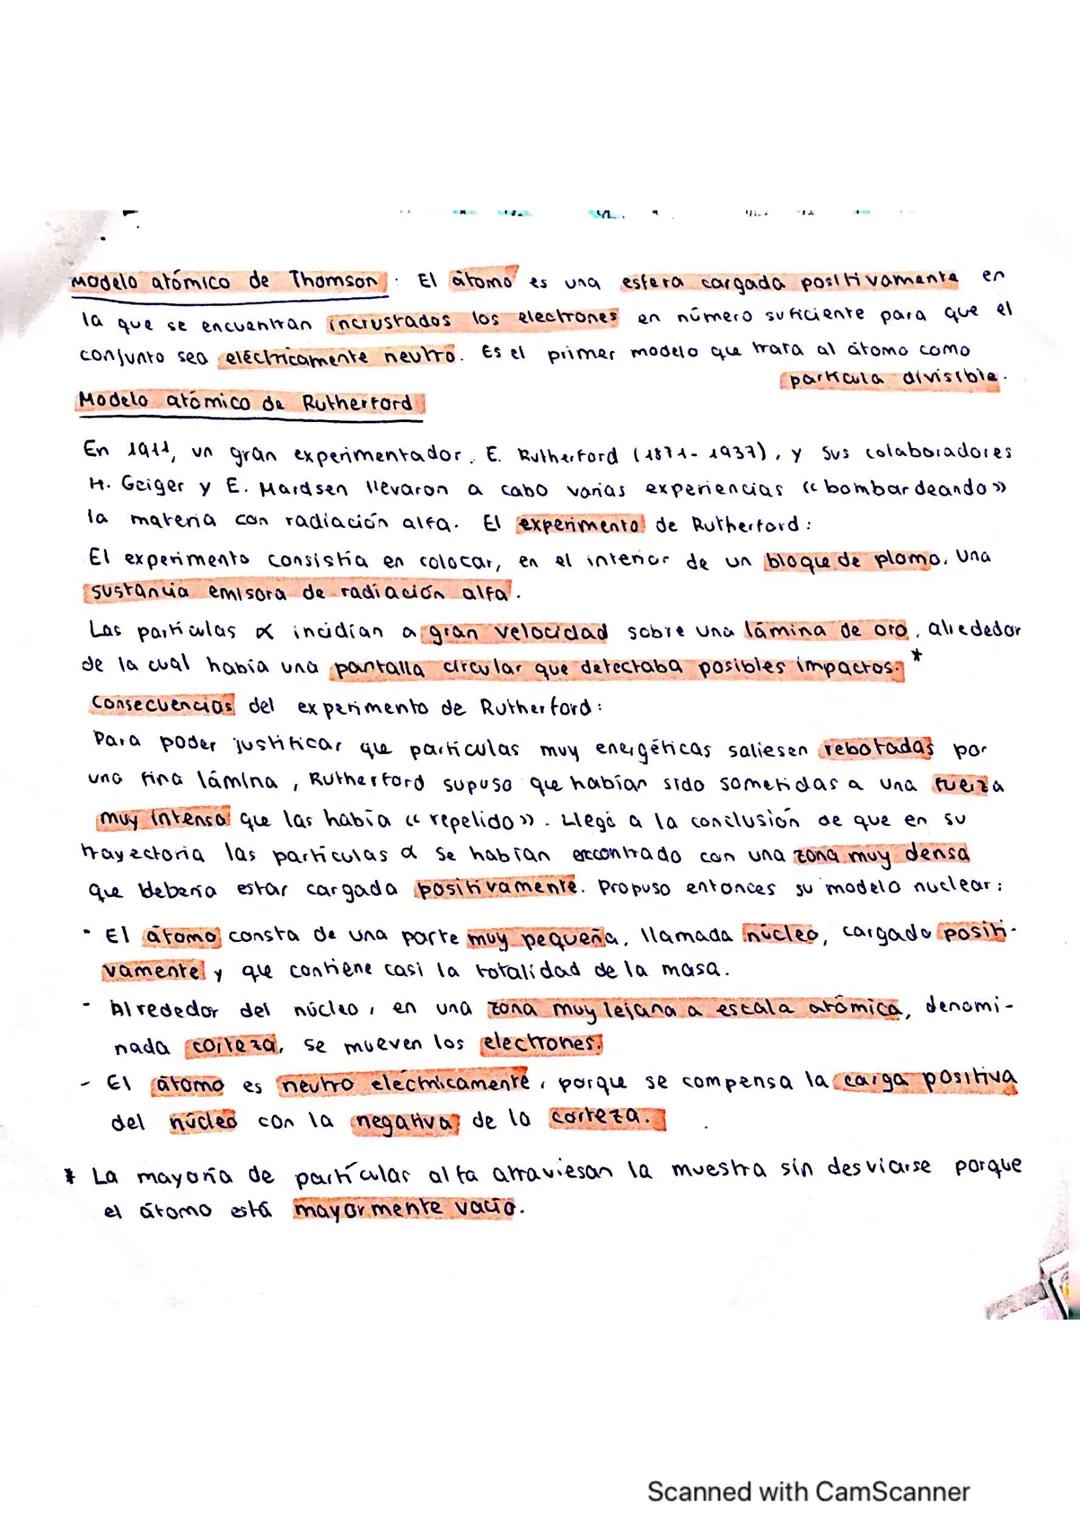 Modelo atómico de Thomson . El átomo es una esfera cargada positivamente en
la que se encuentran incrustados los electrones en número suficiente para que el
conjunto sea eléctricamente neutro. Es el primer modelo que trata al átomo como
partícula divisible.
Modelo atómico de Rutherford
En 1911, un gran experimentador, E. Rutherford (1871-1937), y sus colaboradores
H. Geiger y E. Mardsen llevaron a cabo varias experiencias «bombardeando»
la materia con radiación alfa. El experimento de Rutherford:
El experimento consistía en colocar, en el interior de un bloque de plomo, una
sustancia emisora de radiación alfa.
Las partículas α incidían a gran velocidad sobre una lámina de oro, alrededor
de la cual había una pantalla circular que detectaba posibles impactos. *
Consecuencias del experimento de Rutherford:
Para poder justificar que partículas muy energéticas saliesen rebotadas por
una fina lámina, Rutherford supuso que habían sido sometidas a una fuerza
muy intensa que las había «repelido». Llegó a la conclusión de que en su
trayectoria las partículas α se habían encontrado con una zona muy densa
que debería estar cargada positivamente. Propuso entonces su modelo nuclear:
· El átomo consta de una parte muy pequeña, llamada núcleo, cargado positi-
vamente y que contiene casi la totalidad de la masa.
- Alrededor del núcleo, en una zona muy lejana a escala atómica, denomi-
nada corteza, se mueven los electrones.
- El átomo es neutro eléctricamente, porque se compensa la carga positiva
del núcleo con la negativa de la corteza.
* La mayoría de partículas alfa atraviesan la muestra sin desviarse porque
el átomo está mayormente vacío.
Scanned with CamScanner